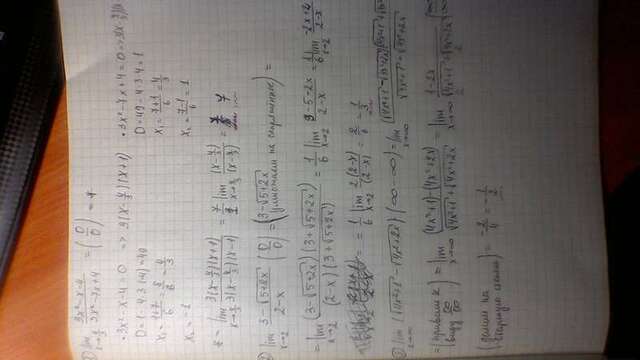 1) lim x→4/3 (3x²-x-4)/(3x²-7x+4) = (0/0) = *
• 3x²-x-4=0 => 3(x-4/3)(x+1)
• 3x²-7x+4=0 =>
D=1-4·3·(-4)=49
D=49-4·3·4=1
x₁= (1+7)/6 = 8/6 = 4/3
x₁= (7+1)/6 = 4/3
x₂=-1
x₂= (7-1)/6 = 1
* = lim x→4/3 3(x-4/3)(x+1)/3(x-4/3)(x-1) = lim x→4/3 (x-4/3)/(x-4/3) = 7
2) lim x→2 (3-√(5+2x))/(2-x) (0/0) = (3-√(5+2x) умножаем на сопряжённое) =
= lim x→2 (3-√(5+2x))(3+√(5+2x))/(2-x)(3+√(5+2x)) = 1/6 lim x→2 (9-5-2x)/(2-x) = 1/6 lim x→2 (-2x+4)/(2-x)
= 1/6 lim x→2 2(2-x)/(2-x) = 2/6 = 1/3
3) lim x→∞ (√(4x²+1)-√(4x²+2x)) (∞-∞) = lim x→∞
= (приводим к виду ∞/∞) = lim x→∞ ((4x²+1)-(4x²+2x))/(√(4x²+1)+√(4x²+2x)) = lim x→∞ (1-2x)/(√(4x²+1)+√(4x²+2x))
(делим на старшую степень) = -2/4 = -1/2